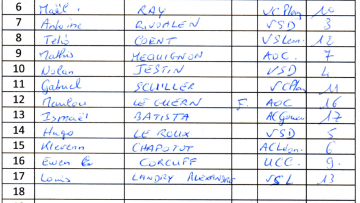 6 Maël RAY VCPlou 10
7 Antoine RIVOALEN VSD 3
8 Télo COENT VSLen. 12
9 Mathis MEQUIGNON AOC. 7
10 Nolan JESTIN VSD 4
11 Gabriel SCULLER VCPlou 11
12 LE GUERN F. AOC 16
13 Ismaël BATISTA ACGouesn 17
14 Hugo LE ROUX VSD 5
15 Kievenn CHAPUTOT 6
16 Ewen CORCUFF UCC. 9.
17 Louis LANDRY ALEXANDRE VSL 13
18